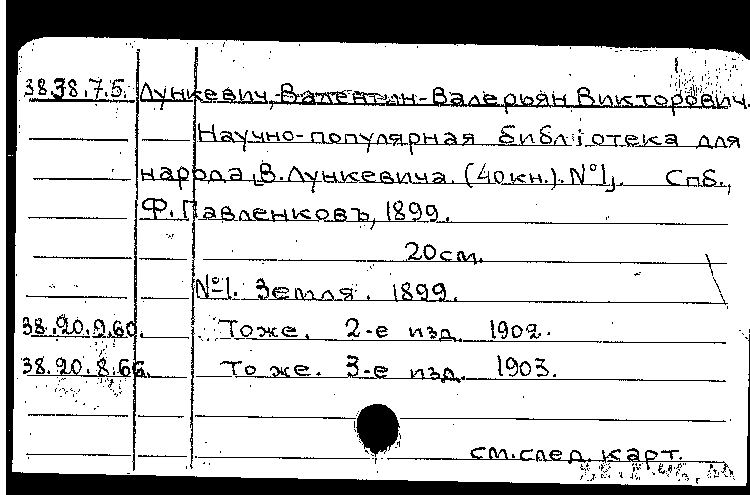 38.38.7.5. Лункевич, Валентин-Валерьян Викторович.
Научно-популярная библиотека для
народа В. Лункевича. (40 кн.). №1. Спб.,
Ф. Павленковъ, 1899.
20 см.
№1. Земля. 1899.
38.20.9.60. Тоже. 2-е изд. 1902.
38.20.8.66. То же. 3-е изд. 1903.
см. след. карт.